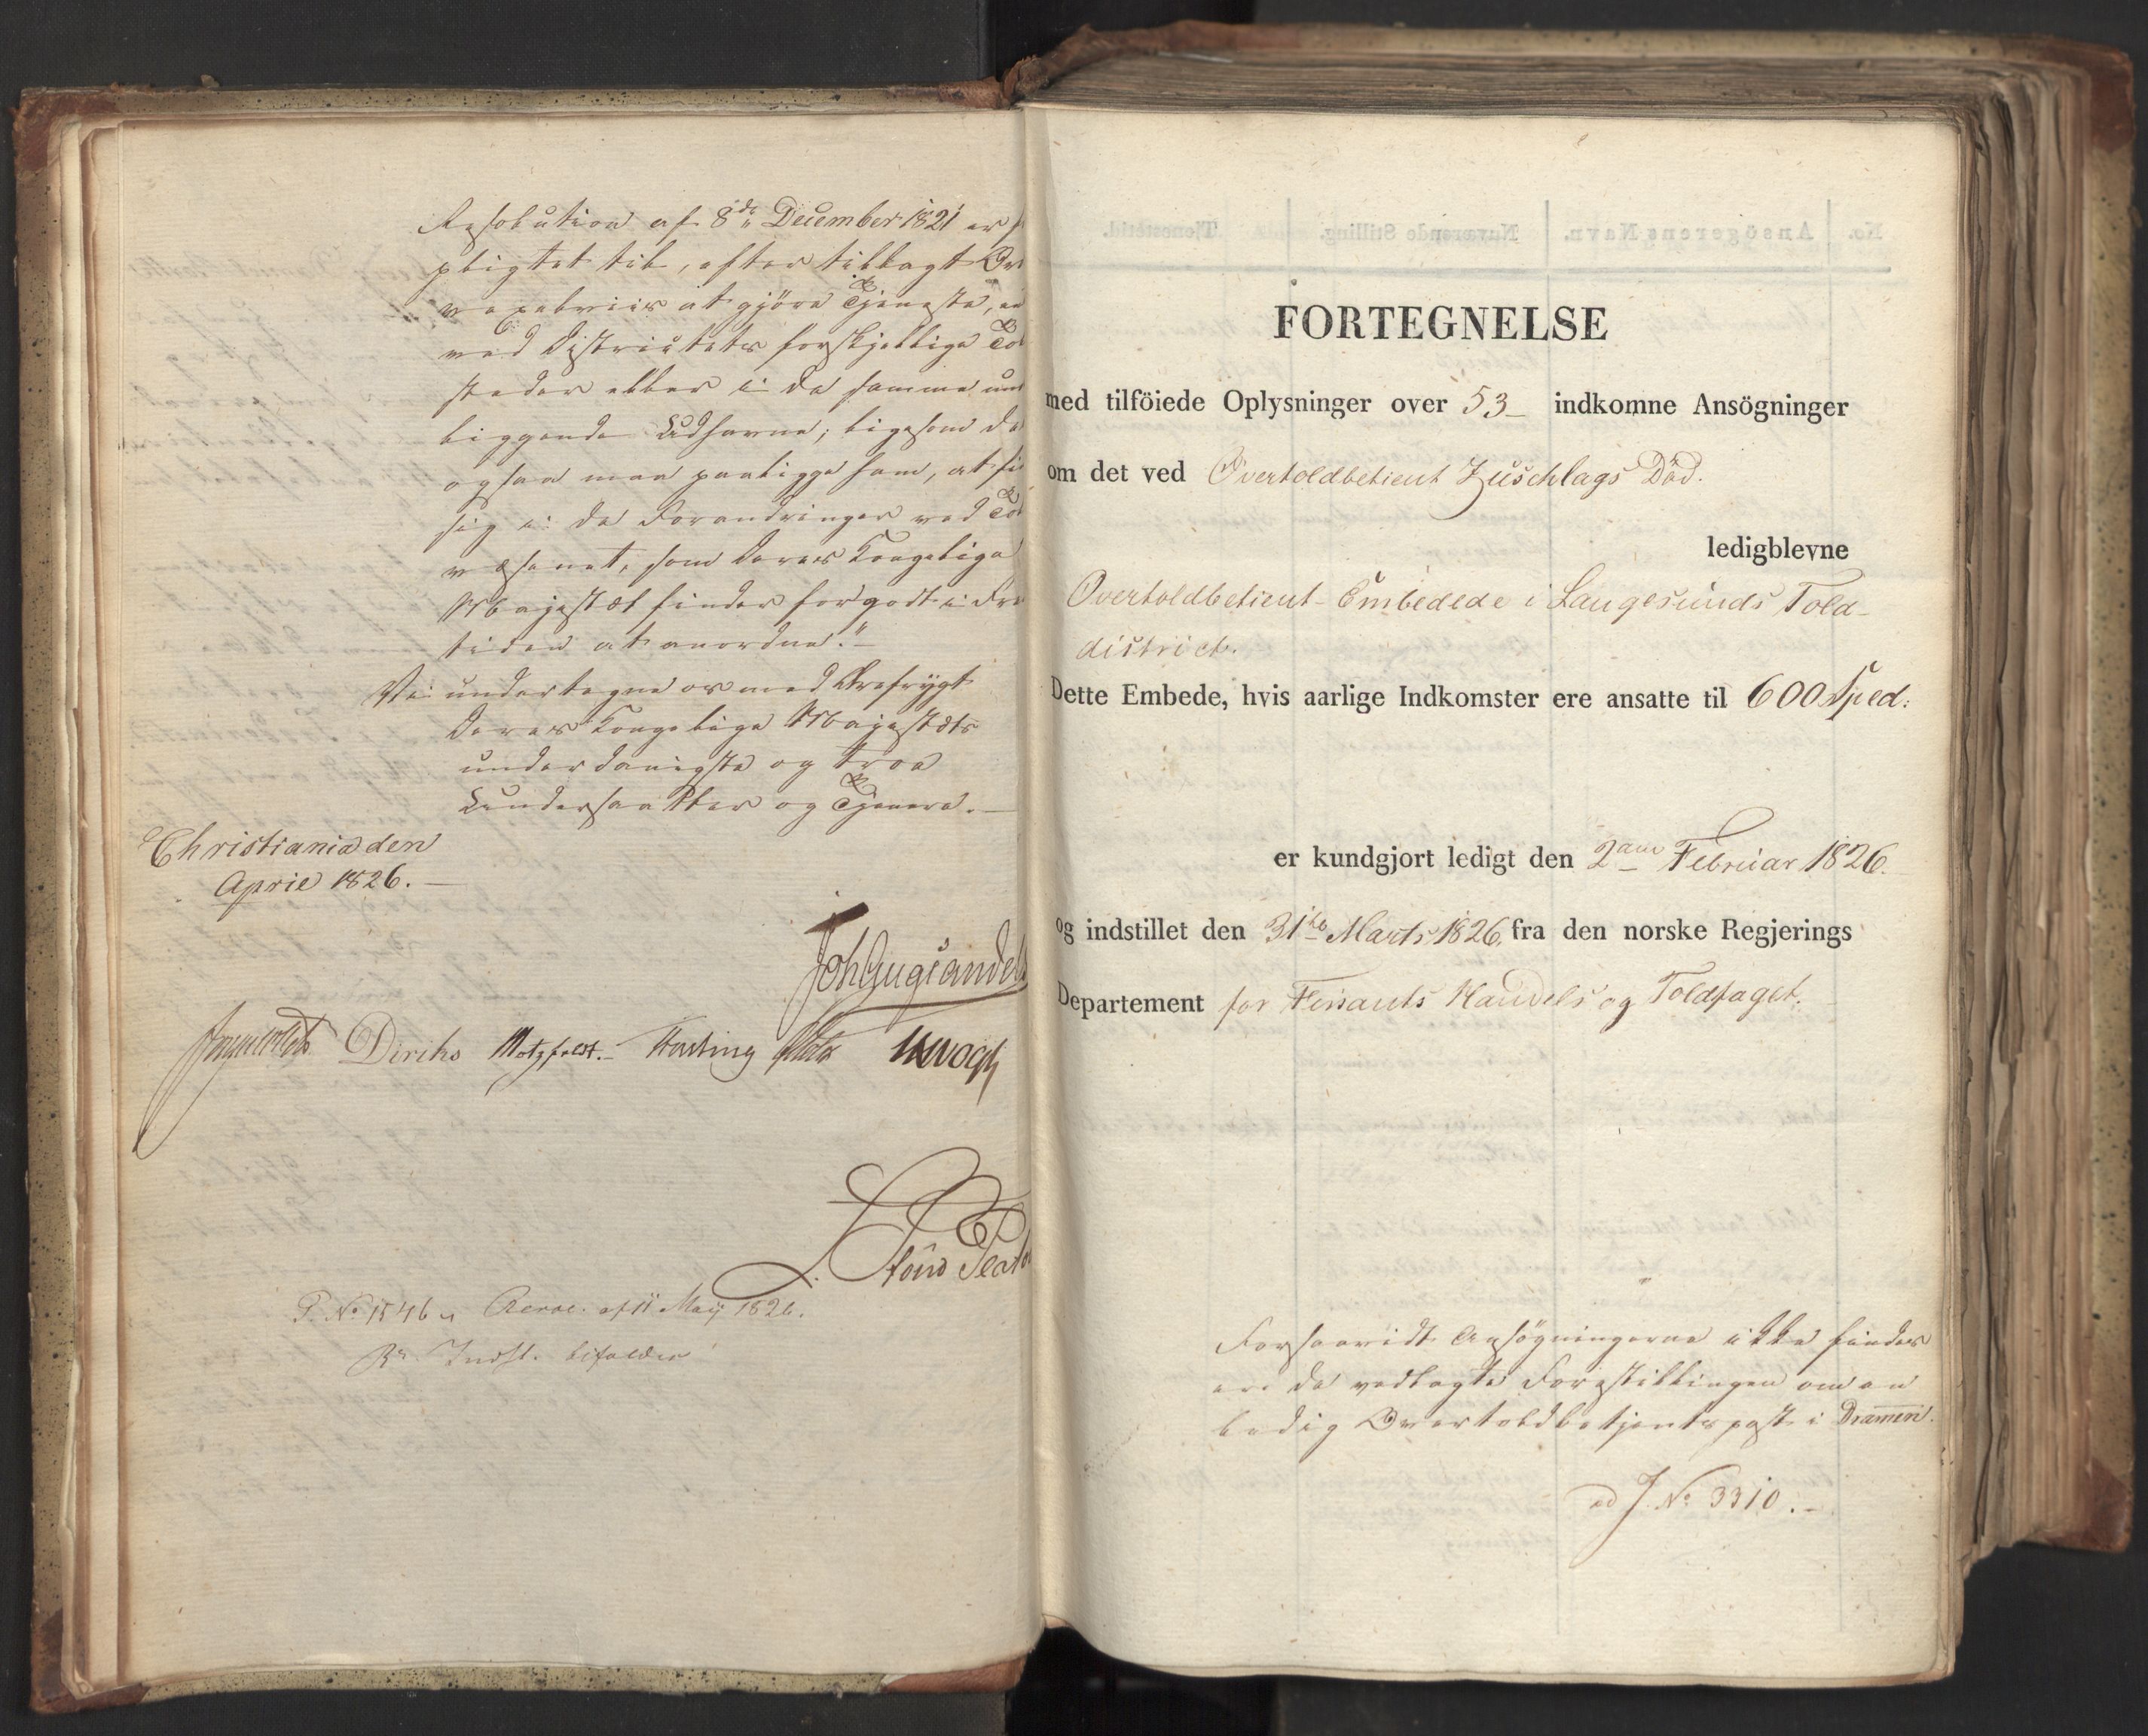 Resolution af 8de December 1821 er
pligtet til, efter tillagt
vexelviis at gjöre Tjeneste,
ved Districtets forskjellige
steder eller i de samme
liggende Udhavne; ligesom
ogsaa maa paaligge ham, at
sig i de Forandringer ved
væsenet, som Deres Kongelige
Majestæt finder for godt i
tiden at anordne."
Vi undertegne os med Ærefrygt
Deres Kongelige Majestæts
underdanigste og troe
Undersaatter og Tjenere.
Christiania den
April 1826.
Joh Aug Sandels
Diriks Motzfeldt. Fasting JHVogt
P. No 1546 Resol. af 11 Maij 1826.
Indst. bifaldes
No. Ansögerens Navn. Nuværende Stilling. Tjenestetid.
FORTEGNELSE
med tilföiede Oplysninger over 53 indkomne Ansögninger
om det ved Overtoldbetient Zuschlags Död.
ledigblevne
Overtoldbetient-Embedede i Langesunds Told-
district.
Dette Embede, hvis aarlige Indkomster ere ansatte til 600 Spd:
er kundgjort ledigt den 2den Februar 1826.
og indstillet den 31te Marts 1826. fra den norske Regjerings
Departement for Finants Handels og Toldfaget.
Forsaavidt Ansögningerne ikke findes
ere de vedlagte Forestillingen om en
ledig Overtoldbetjentspost i Dramen.
ad J. No 3310.